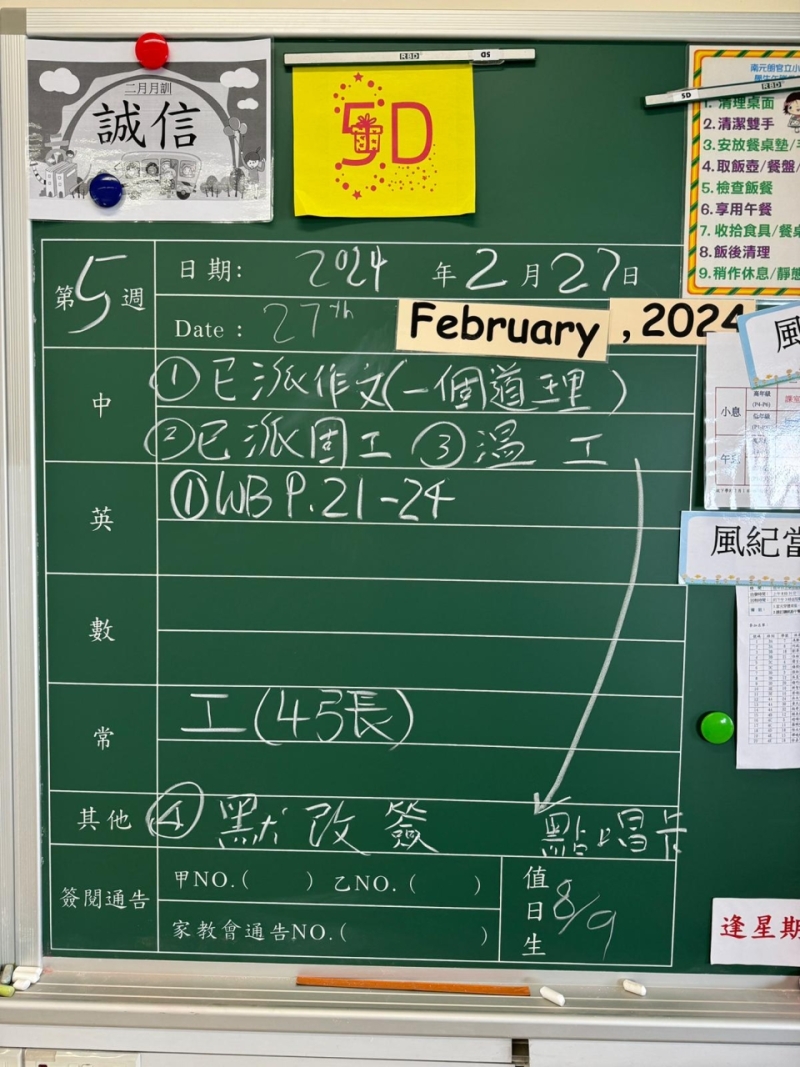 二月月訓
誠信
RBD
SD
5D
SD
RBD
南元朗官立小
1. 清理桌面
2. 清潔雙手
3. 安放餐桌墊/
4. 取飯壺/餐盤/
5. 檢查飯餐
6. 享用午餐
7. 收拾食具/餐桌
8. 飯後清理
9. 稍作休息/靜態
第5週
日期: 2024 年 2 月 27 日
Date : 27th February , 2024
中
①已派作文(一個道理)
②已派固工 ③溫工
英
①WB P.21-24
數
常
工(45長)
其他
④默改簽
點唱卡
簽閱通告
甲NO.( ) 乙NO.( )
家教會通告NO.( )
值日生 8/9
風
小息
午
風紀當
逢星期